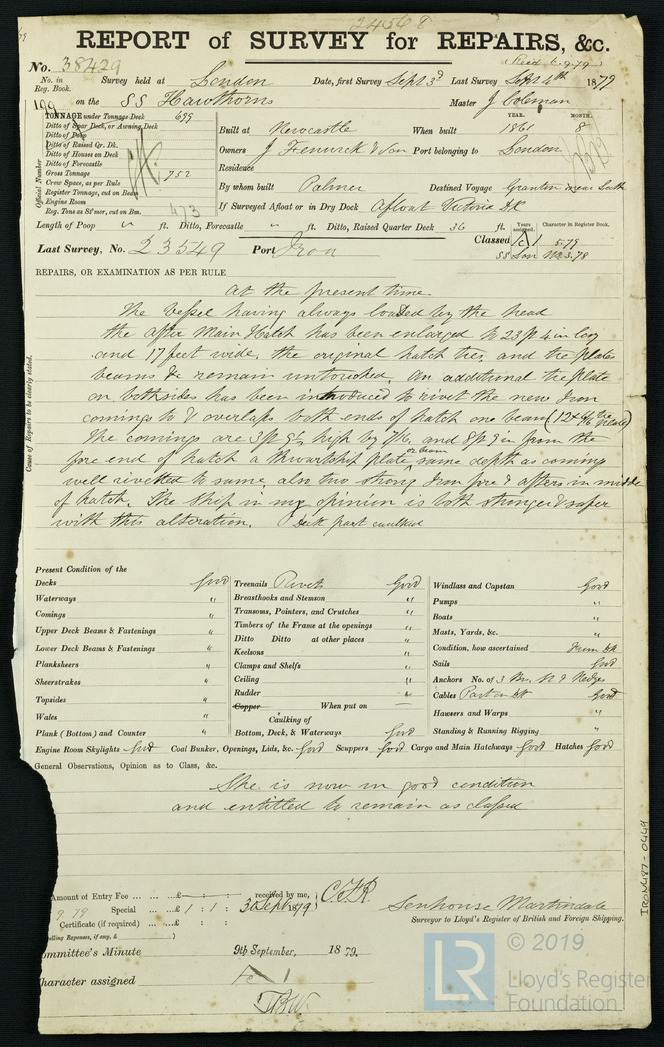 24568
REPORT of SURVEY for REPAIRS, &c.
No. 38429 (Recd 6.9.79)
No. in Reg. Book. Survey held at London Date, first Survey Sept 3d Last Survey Sept 4th 1879
199 on the SS Hawthorns Master J Coleman
TONNAGE under Tonnage Deck 699
Ditto of Spar Deck, or Awning Deck
Ditto of Poop
Ditto of Raised Qr. Dk.
Ditto of Houses on Deck
Ditto of Forecastle
Gross Tonnage 752
Crew Space, as per Rule
Register Tonnage, cut on Beam
Engine Room
Reg. Tons as St'mer, cut on Bm. 473
Official Number
YEAR. MONTH.
Built at Newcastle When built 1861 8
Owners J Fenwick & Son Port belonging to London
Residence
By whom built Palmer Destined Voyage Granton near Leith
If Surveyed Afloat or in Dry Dock Afloat Victoria Dk
Length of Poop " ft. Ditto, Forecastle " ft. Ditto, Raised Quarter Deck 36 ft.
Years assigned. Character in Register Book.
Last Survey, No. 23549 Port Iron Classed 1 5.79
SS Lon No3.78
REPAIRS, OR EXAMINATION AS PER RULE
Cause of Repairs to be clearly stated.
at the present time.
The vessel having always loaded by the head
the after Main Hatch has been enlarged to 23ft 4 in long
and 17 feet wide, the original hatch ties, and tie plates
beams &c remain untouched. An additional tieplate
on bothsides has been introduced to rivet the new Iron
comings to & overlaps both ends of hatch one beam (12 x 6/16 the tie plate)
The comings are 3ft 9½ high by 7/16, and 8ft 9 in from the
fore end of hatch a thwartship plate or beam same depth as coming
well rivetted to same, also two strong Iron fore & afters in middle
of hatch. The ship in my opinion is both stronger & safer
with this alteration. Deck part caulked
Present Condition of the
Decks Good
Waterways "
Comings "
Upper Deck Beams & Fastenings "
Lower Deck Beams & Fastenings "
Planksheers "
Sheerstrakes "
Topsides "
Wales "
Plank (Bottom) and Counter "
Treenails Rivets Good
Breasthooks and Stemson "
Transoms, Pointers, and Crutches "
Timbers of the Frame at the openings "
Ditto Ditto at other places "
Keelsons "
Clamps and Shelfs "
Ceiling "
Rudder "
Copper When put on —
Caulking of
Bottom, Deck, & Waterways Good
Windlass and Capstan Good
Pumps "
Boats "
Masts, Yards, &c. "
Condition, how ascertained From Dk
Sails Good
Anchors No. of 3 Brs
Cables Part on Dk Good
Hawsers and Warps "
Standing & Running Rigging "
Engine Room Skylights Good Coal Bunker, Openings, Lids, &c. Good Scuppers Good Cargo and Main Hatchways Good Hatches Good
General Observations, Opinion as to Class, &c.
She is now in good condition
and entitled to remain as classed
Amount of Entry Fee ... ... £ : : received by me, C.F.R
9 79 Special ... ... £ 1 : 1 : 3d Sept 1879
Certificate (if required) ... ... £ : :
elling Expenses, if any, £
Senhouse Martindale
Surveyor to Lloyd's Register of British and Foreign Shipping.
ommittee's Minute 9th September, 1879.
haracter assigned
IRON487-0449
LR © 2019
Lloyd's Register
Foundation